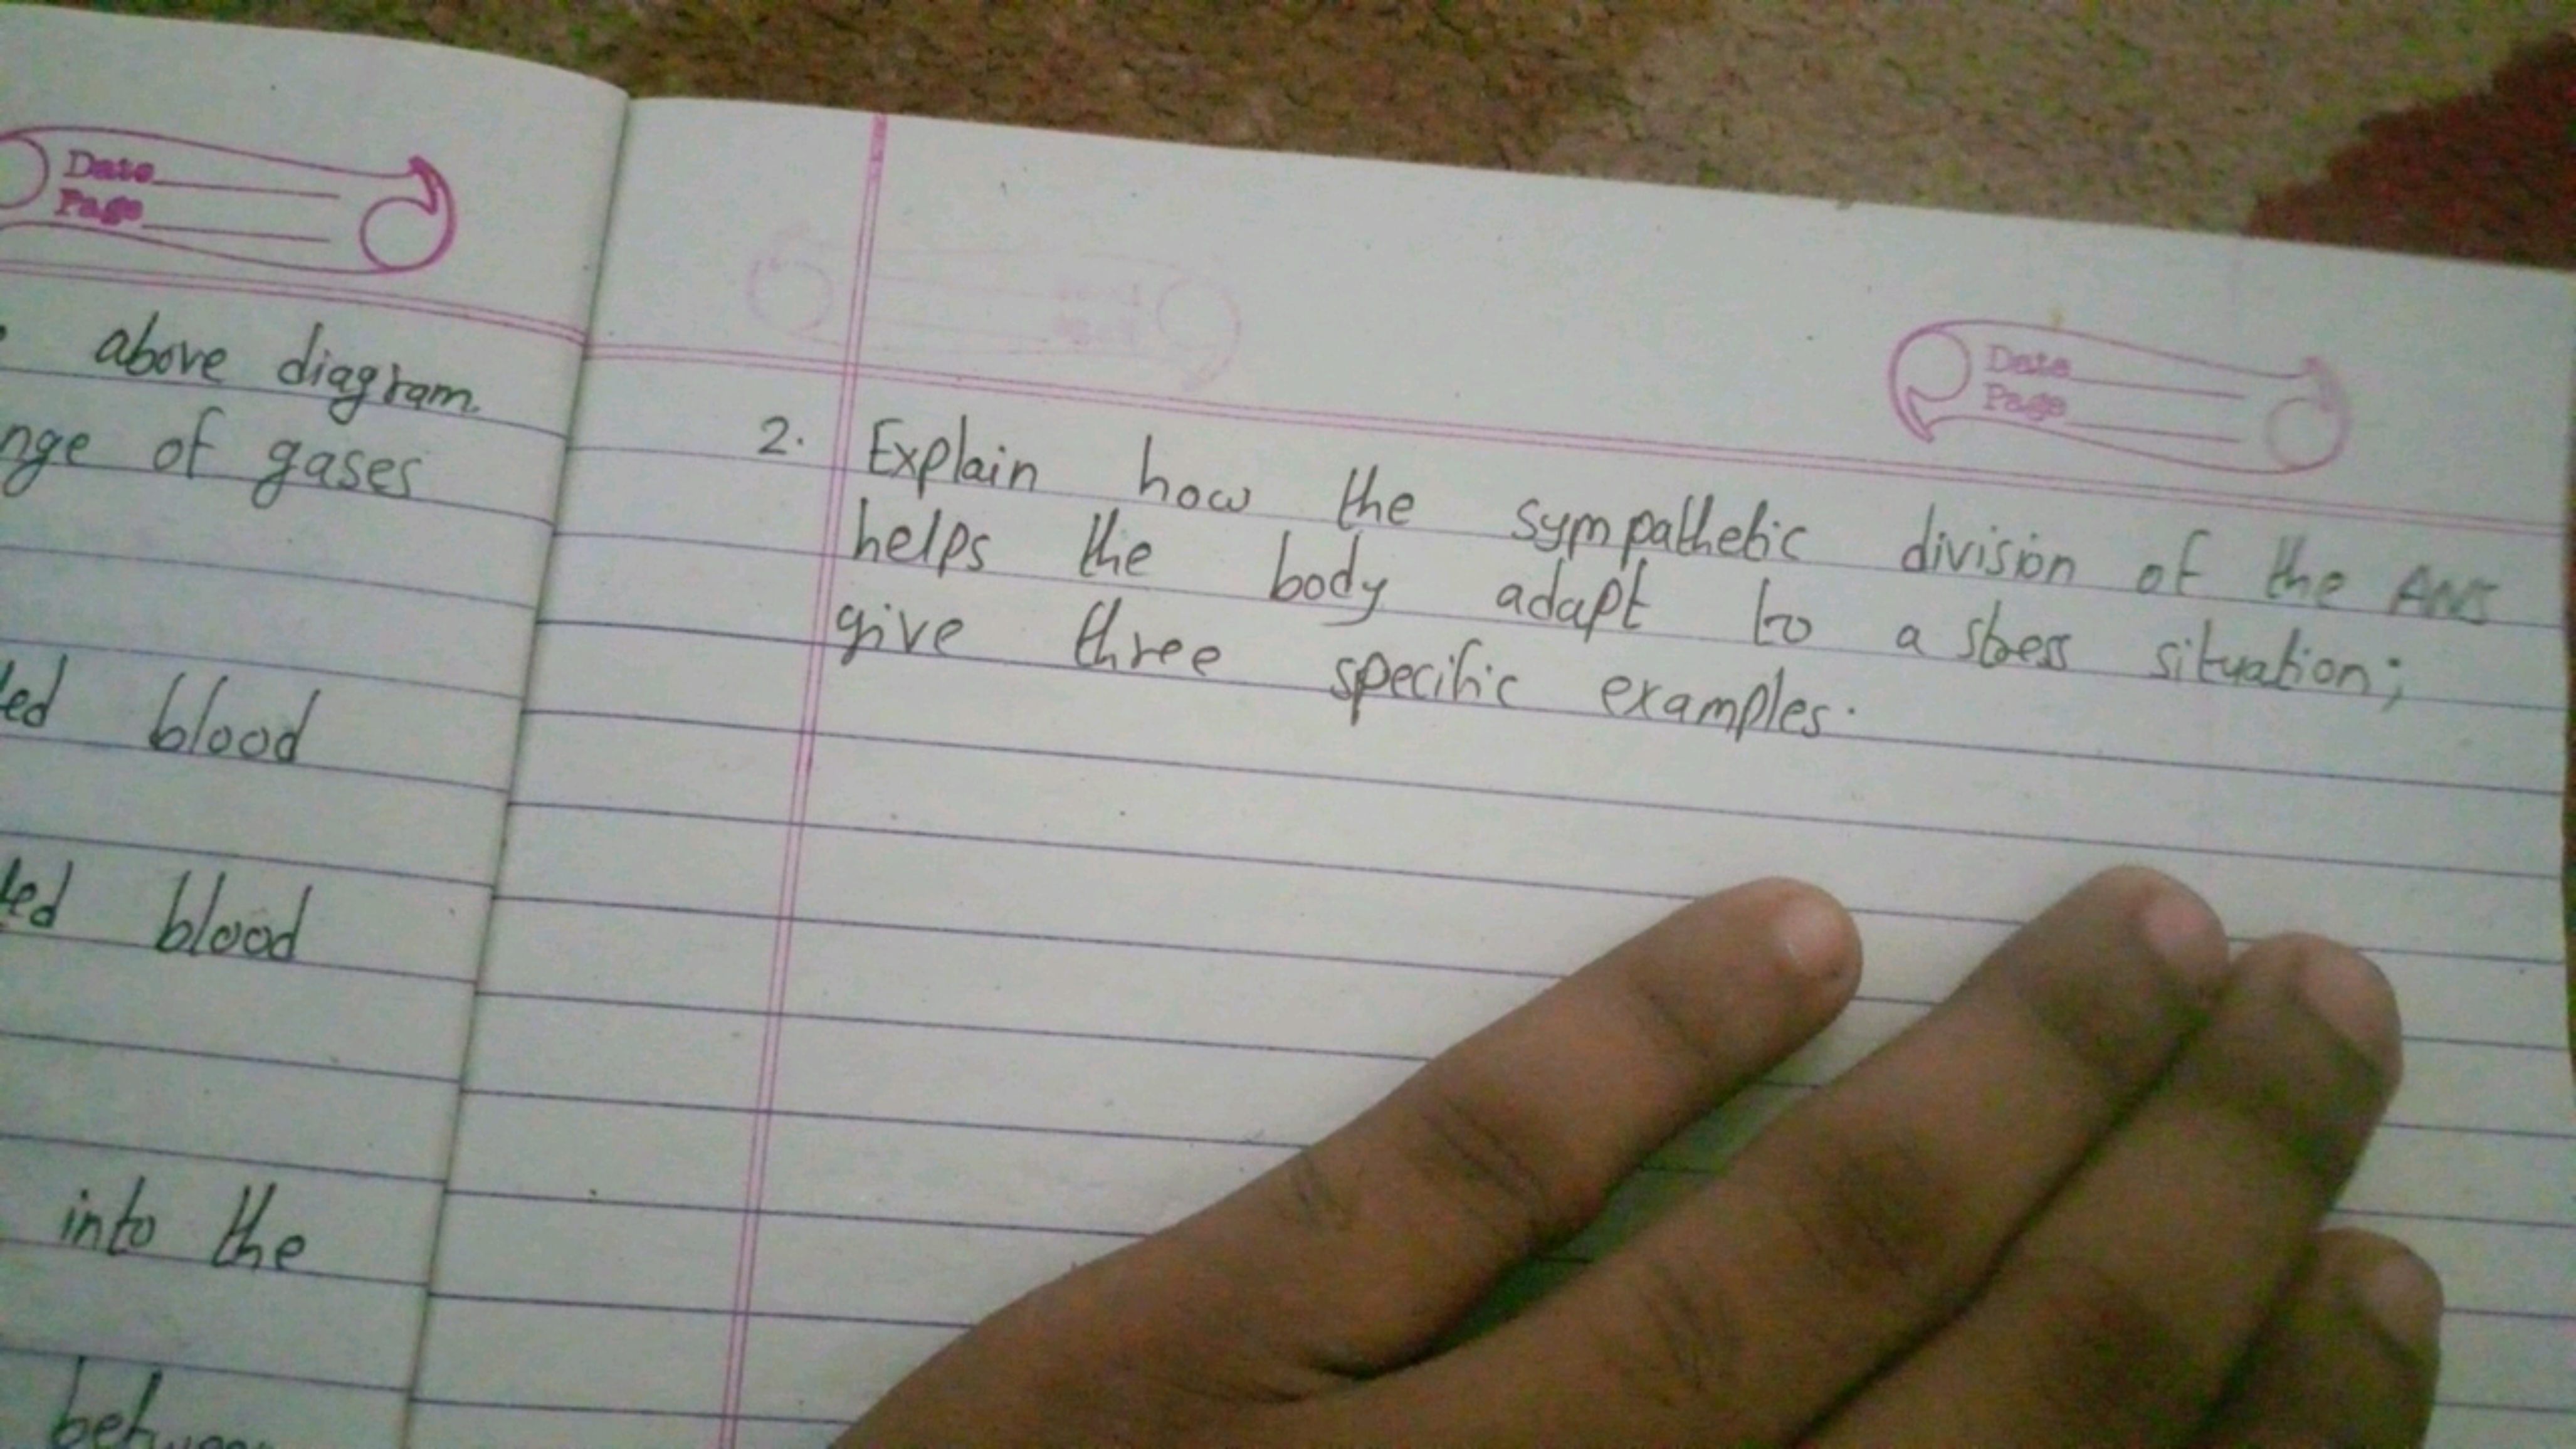 Date
Page
above diagram.
nge of gases
ed blood
ted blood
into the
Date
Page
2. Explain how the sympathetic division of the ANS
helps the body adapt to a stress situation;
give three specific examples.